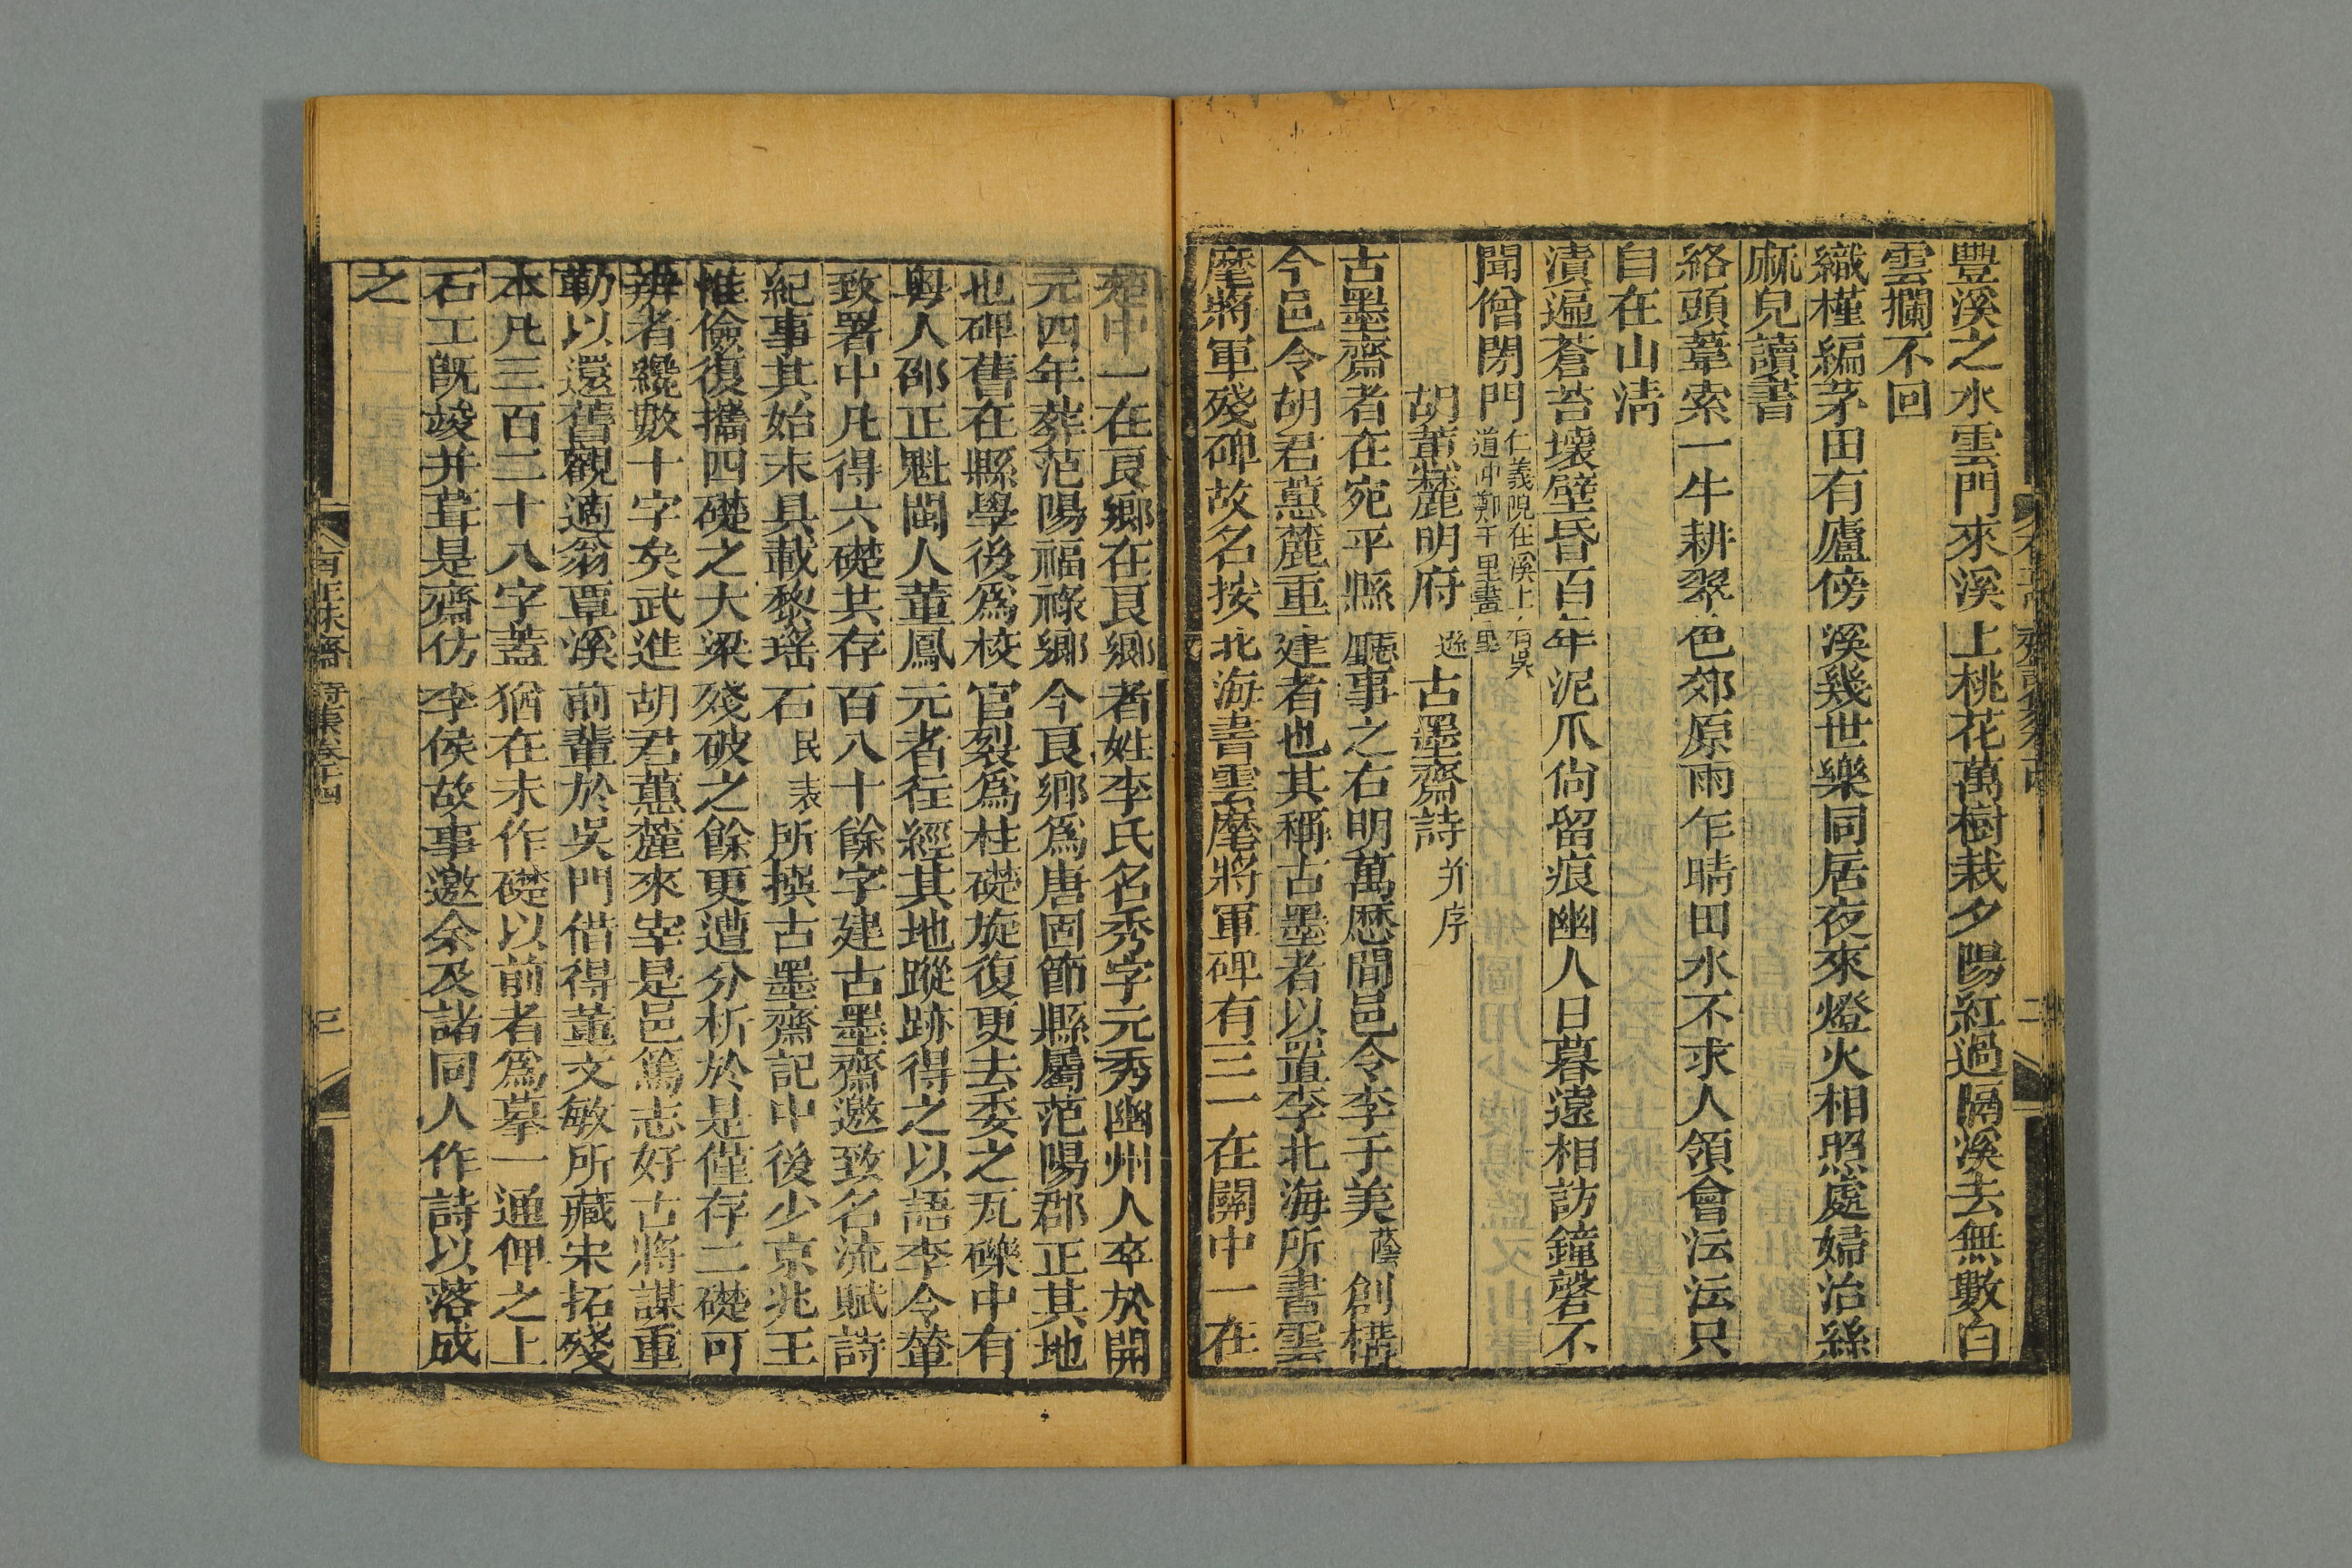 豐溪之水雲門來溪上桃花萬樹栽夕陽紅過隔溪去無數白
雲攔不回
織槿編茅田有廬傍溪幾世樂同居夜來燈火相照處婦治絲
麻兒讀書
絡頭葦索一牛耕翠色郊原雨乍晴田水不求人領會沄沄只
自在山淸
漬遍蒼苔壞壁昏百年泥爪尙留痕幽人日暮遠相訪鐘磬不
聞僧閉門
仁義隄在溪上有吳
道中鄭千里畫里
胡蕙麓明府
遜
古墨齋詩
并序
古墨齋者在宛平縣廳事之右明萬厯間邑令李于美
蔭
創構
今邑令胡君蕙麓重建者也其稱古墨者以置李北海所書雲
麾將軍殘碑故名按北海書雲麾將軍碑有三一在關中一在
楚中一在良鄉在良鄉者姓李氏名秀字元秀幽州人卒於開
元四年葬范陽福祿鄉今良鄉爲唐固節縣屬范陽郡正其地
也碑舊在縣學後爲校官裂爲柱礎旋復更去委之瓦礫中有
粵人邵正魁閩人董鳳元者徃經其地蹤跡得之以語李令輦
致署中凡得六礎共存百八十餘字建古墨齋邀致名流賦詩
紀事其始末具載黎瑤石
民表
所撰古墨齋記中後少京兆王
惟儉復攜四礎之大梁殘破之餘更遭分析於是僅存二礎可
辨者纔數十字矣武進胡君蕙麓來宰是邑篤志好古將謀重
勒以還舊觀適翁覃溪前輩於吳門借得董文敏所藏宋拓殘
本凡三百二十八字蓋猶在未作礎以前者爲摹一通俾之上
石工旣竣并葺是齋仿李侯故事邀余及諸同人作詩以落成
之
詩集卷十四
三